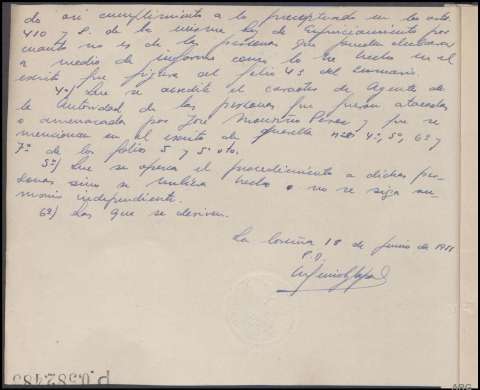 do así cumplimiento a lo preceptuado en los arts.
410 y s. de la misma Ley de Enjuiciamiento por
cuanto no es de las personas que puedan declarar
a medio de informe como lo ha hecho en el
escrito que figura al folio 43 del sumario.
4º) Que se acredite el carácter de Agente de
la Autoridad de las personas que fueron atacadas
o amenazadas por José Perez y que se
mencionan en el escrito de querella nºs 4º, 5º, 6º y
7º de los folios 5 y 5º vto.
5º) Que se opera el procedimiento a dichas per-
sonas sino se hubiera hecho o no se siga su-
mario independiente.
6º) Las que se deriven.
La Coruña 18 de Junio de 1951
P.D.
P.0.582.485
ARG